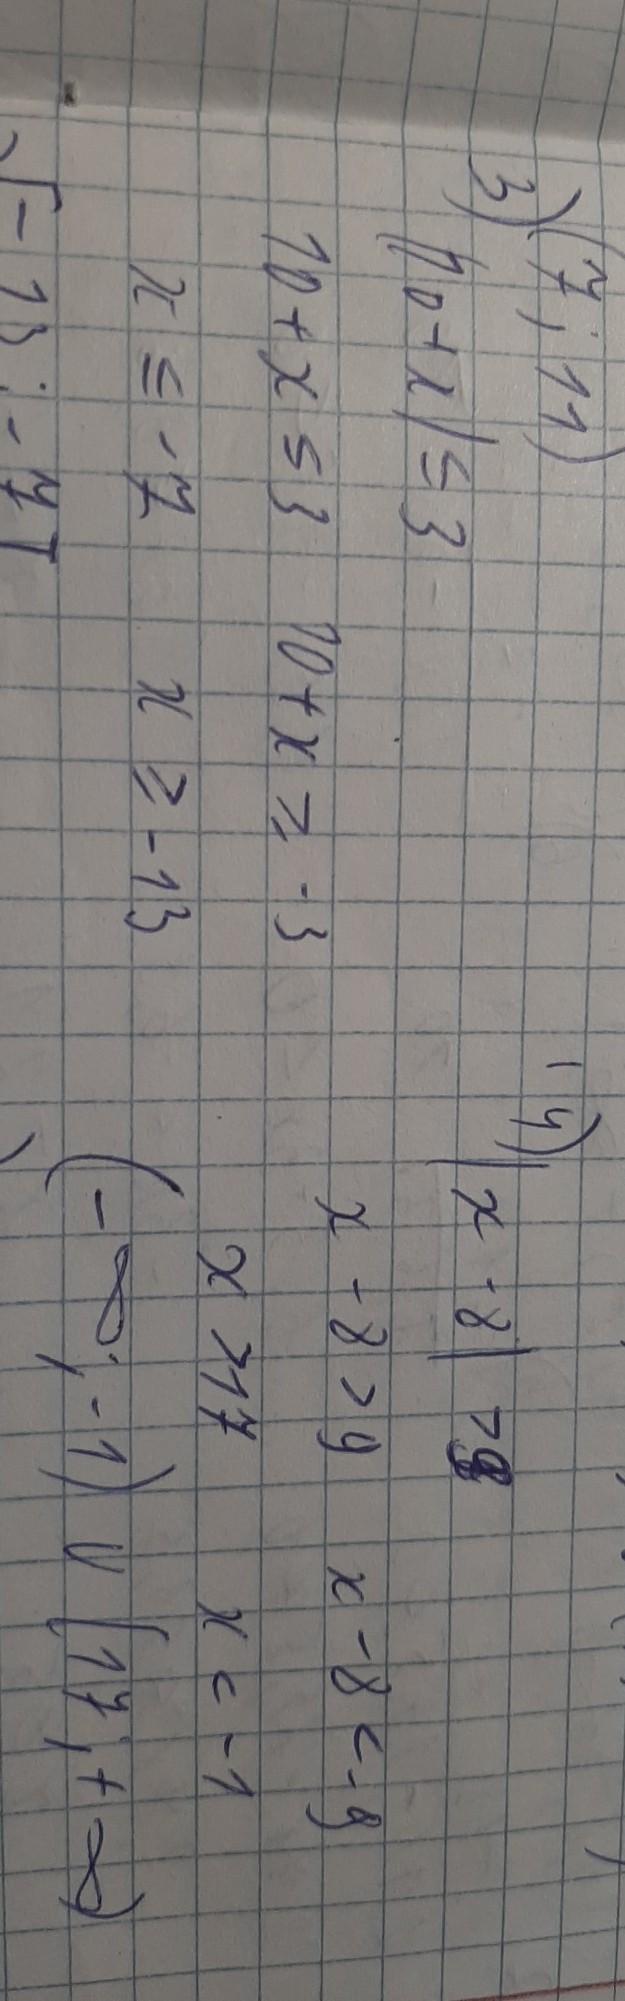 3) (7; 11)
|10 + x| ≤ 3
10 + x ≤ 3 10 + x ≥ -3
x ≤ -7 x ≥ -13
[-13; -7]
4) |x - 8| > 9
x - 8 > 9 x - 8 < -9
x > 17 x < -1
(-∞; -1) U [17; +∞)